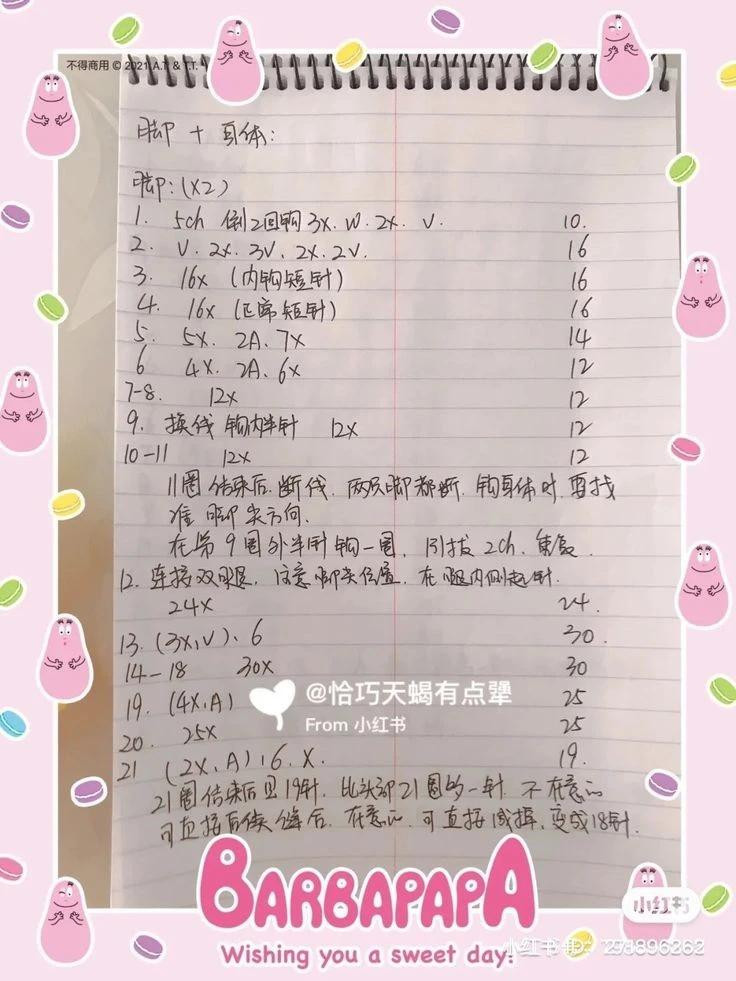 不得商用 © 2021 A.T. & T.T.
脚 + 身体:
脚:(X2)
1. 5ch 倒2回钩 3X. W. 2X. V. 10.
2. V. 2X. 3V. 2X. 2V. 16
3. 16X (内钩短针) 16
4. 16X (正常短针) 16
5. 5X. 2A. 7X 14
6 4X. 2A. 6X 12
7-8. 12X 12
9. 换线 钩内半针 12X 12
10-11 12X 12
11圈结束后.断线. 两只脚都断. 钩身体时.要找
准 脚尖方向.
在第9圈外半针钩一圈, 引拔 2ch. 重复.
12. 连接双腿, 注意脚尖位置. 在腿内侧起针.
24X 24.
13. (3X,V). 6 30.
14-18 30X 30
19. (4X,A) 25
20. 25X 25
21 (2X,A).6.X. 19.
21圈结束后见19针. 比头部21圈多一针 不在意的
可直接后续缝合. 在意的. 可直接减掉,变成18针.
@恰巧天蝎有点犟
From 小红书
BARBAPAPA
Wishing you a sweet day!
小红书
小红书号: 271896262